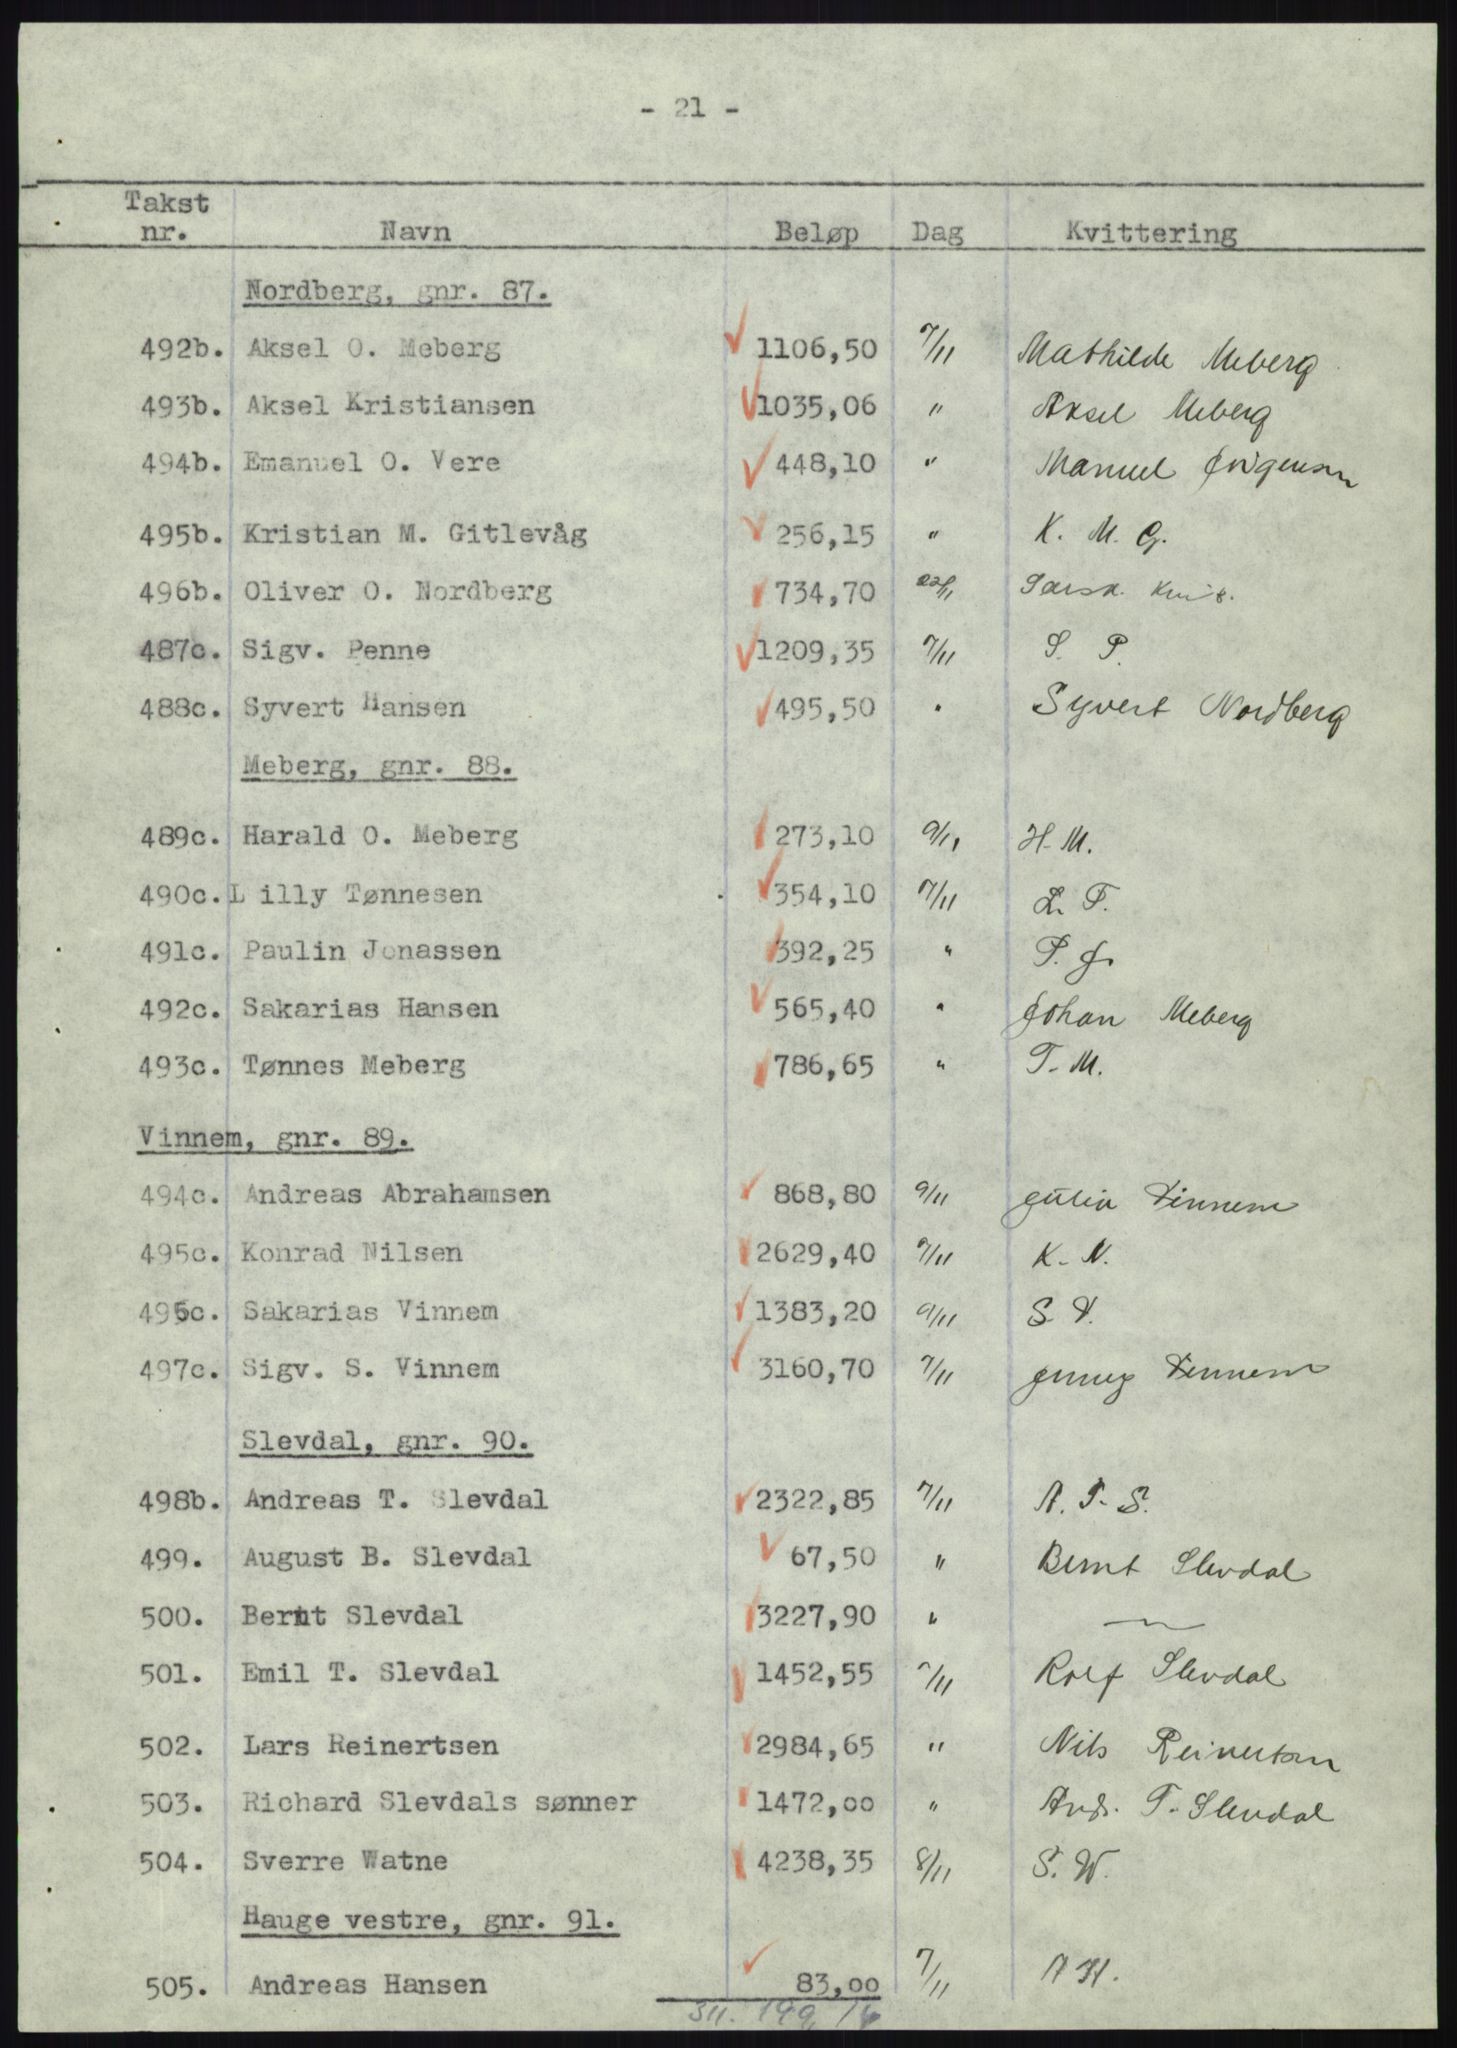 - 21 -
Takst nr. Navn Beløp Dag Kvittering
Nordberg, gnr. 87.
492b. Aksel O. Meberg 1106,50 7/11 Mathilde Meberg
493b. Aksel Kristiansen 1035,06 " Aksel Meberg
494b. Emanuel O. Vere 448,10 " Manuel
495b. Kristian M. Gitlevåg 256,15 " K. M. G.
496b. Oliver O. Nordberg 734,70 22/11
487c. Sigv. Penne 1209,35 7/11 S. P.
488c. Syvert Hansen 495,50 " Syvert Nordberg
Meberg, gnr. 88.
489c. Harald O. Meberg 273,10 9/11 H. M.
490c. L illy Tønnesen 354,10 7/11 L. T.
491c. Paulin Jonassen 392,25 " P. J.
492c. Sakarias Hansen 565,40 " Johan Meberg
493c. Tønnes Meberg 786,65 " T. M.
Vinnem, gnr. 89.
494c. Andreas Abrahamsen 868,80 9/11 Julia Vinnem
495c. Konrad Nilsen 2629,40 7/11 K. N.
496c. Sakarias Vinnem 1383,20 9/11 S. V.
497c. Sigv. S. Vinnem 3160,70 7/11 Jenny Vinnem
Slevdal, gnr. 90.
498b. Andreas T. Slevdal 2322,85 7/11 A. T. S.
499. August B. Slevdal 67,50 " Bernt Slevdal
500. Bernt Slevdal 3227,90 "
501. Emil T. Slevdal 1452,55 7/11 Rolf Slevdal
502. Lars Reinertsen 2984,65 " Nils Reinertsen
503. Richard Slevdals sønner 1472,00 " Andr. T. Slevdal
504. Sverre Watne 4238,35 8/11 S. W.
Hauge vestre, gnr. 91.
505. Andreas Hansen 83,00 7/11 A H.
311.199,16